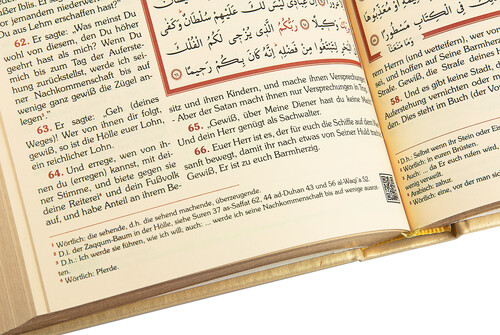 jenem niederwerfen
Du aus Lehm erschaffen hast?"
62. Er sagte: „Was meinst Du
wohl von diesem, den Du höher
geehrt hast als mich? Wenn Du
mir bis zum Tag der Auferste-
hung zurückstellst, werde ich sei-
ner Nachkommenschaft bis auf
wenige ganz gewiß die Zügel an-
legen³."
63. Er sagte: „Geh (deines
Weges)! Wer von ihnen dir folgt,
gewiß, so ist die Hölle euer Lohn,
ein reichlicher Lohn.
64. Und errege, wen von ih-
nen du (erregen) kannst, mit dei-
ner Stimme, und biete gegen sie
deine Reiterei⁴ und dein Fußvolk
auf, und habe Anteil an ihrem Be-
sitz und ihren Kindern, und mache ihnen Versprechungen."
- Aber der Satan macht ihnen nur Versprechungen in Trug.
65. „Gewiß, über Meine Diener hast du keine
Und dein Herr genügt als Sachwalter.
66. Euer Herr ist es, der für euch die Schiffe auf dem
sanft bewegt, damit ihr nach etwas von Seiner Huld trachtet.
Gewiß, Er ist zu euch Barmherzig.
¹ Wörtlich: die sehende, d.h. die sehend machende, überzeugende.
² D.i. der Zaqqum-Baum in der Hölle, siehe Suren 37 as-Saffat 62, 44 ad-Duhan 43 und 56 al-Waqi'a 52.
³ D.h.: Ich werde sie führen, wie ich will; auch: ... werde ich seine Nachkommenschaft bis auf wenige ausrot-
ten.
⁴ Wörtlich: Pferde.
وَكِيلًا رَبُّكُمُ الَّذِي يُزْجِي لَكُمُ الْفُلْكَ
مِنْ فَضْلِهِ إِنَّهُ كَانَ بِكُمْ رَحِيمًا
فِي الْكِتَابِ مَسْطُورًا
Herrn (und wetteifern), wer von
und hoffen auf Seine Barmherzigkeit
Strafe. Gewiß, die Strafe deines
58. Und es gibt keine Stadt, die
Auferstehung vernichten oder
Dies steht im Buch (der Vor
¹ D.h.: Selbst wenn ihr Stein oder
² Wörtlich: in euren Brüsten.
³ Auch: ... da Er euch rufen wird,
wenig verweilt.
⁴ Arabisch: zabur.
⁵ Wörtlich: eine, vor der man sich